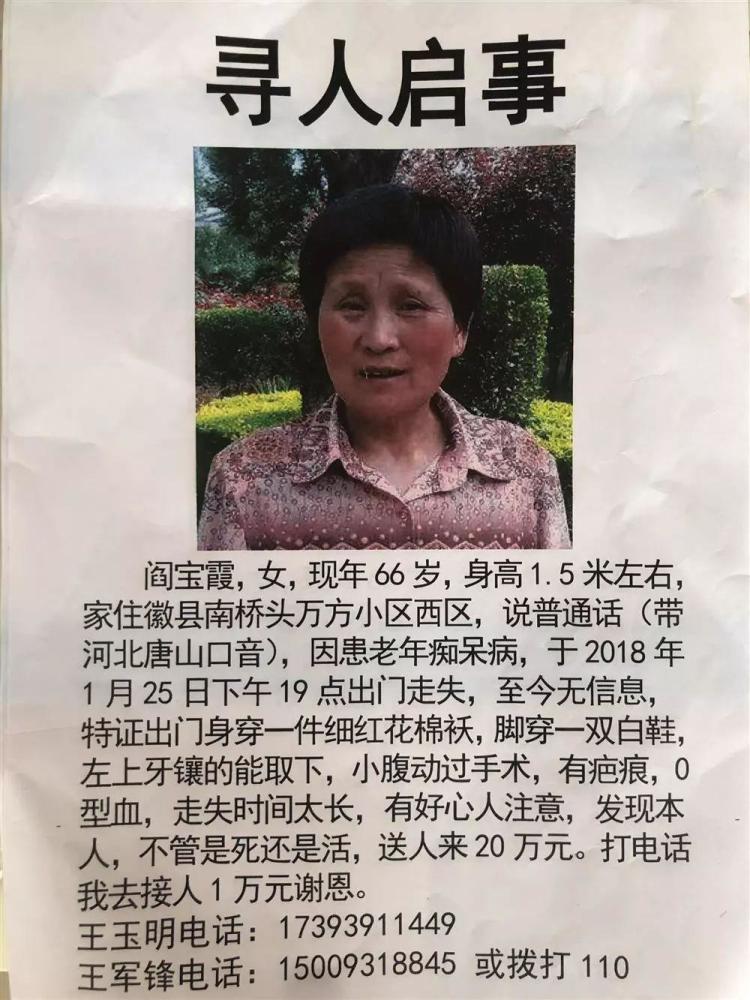 寻人启事
阎宝霞，女，现年66岁，身高1.5米左右，
家住徽县南桥头万方小区西区，说普通话（带
河北唐山口音），因患老年痴呆病，于2018年
1月25日下午19点出门走失，至今无信息，
特证出门身穿一件细红花棉袄，脚穿一双白鞋，
左上牙镶的能取下，小腹动过手术，有疤痕，O
型血，走失时间太长，有好心人注意，发现本
人，不管是死还是活，送人来20万元。打电话
我去接人1万元谢恩。
王玉明电话：17393911449
王军锋电话：15009318845 或拨打110